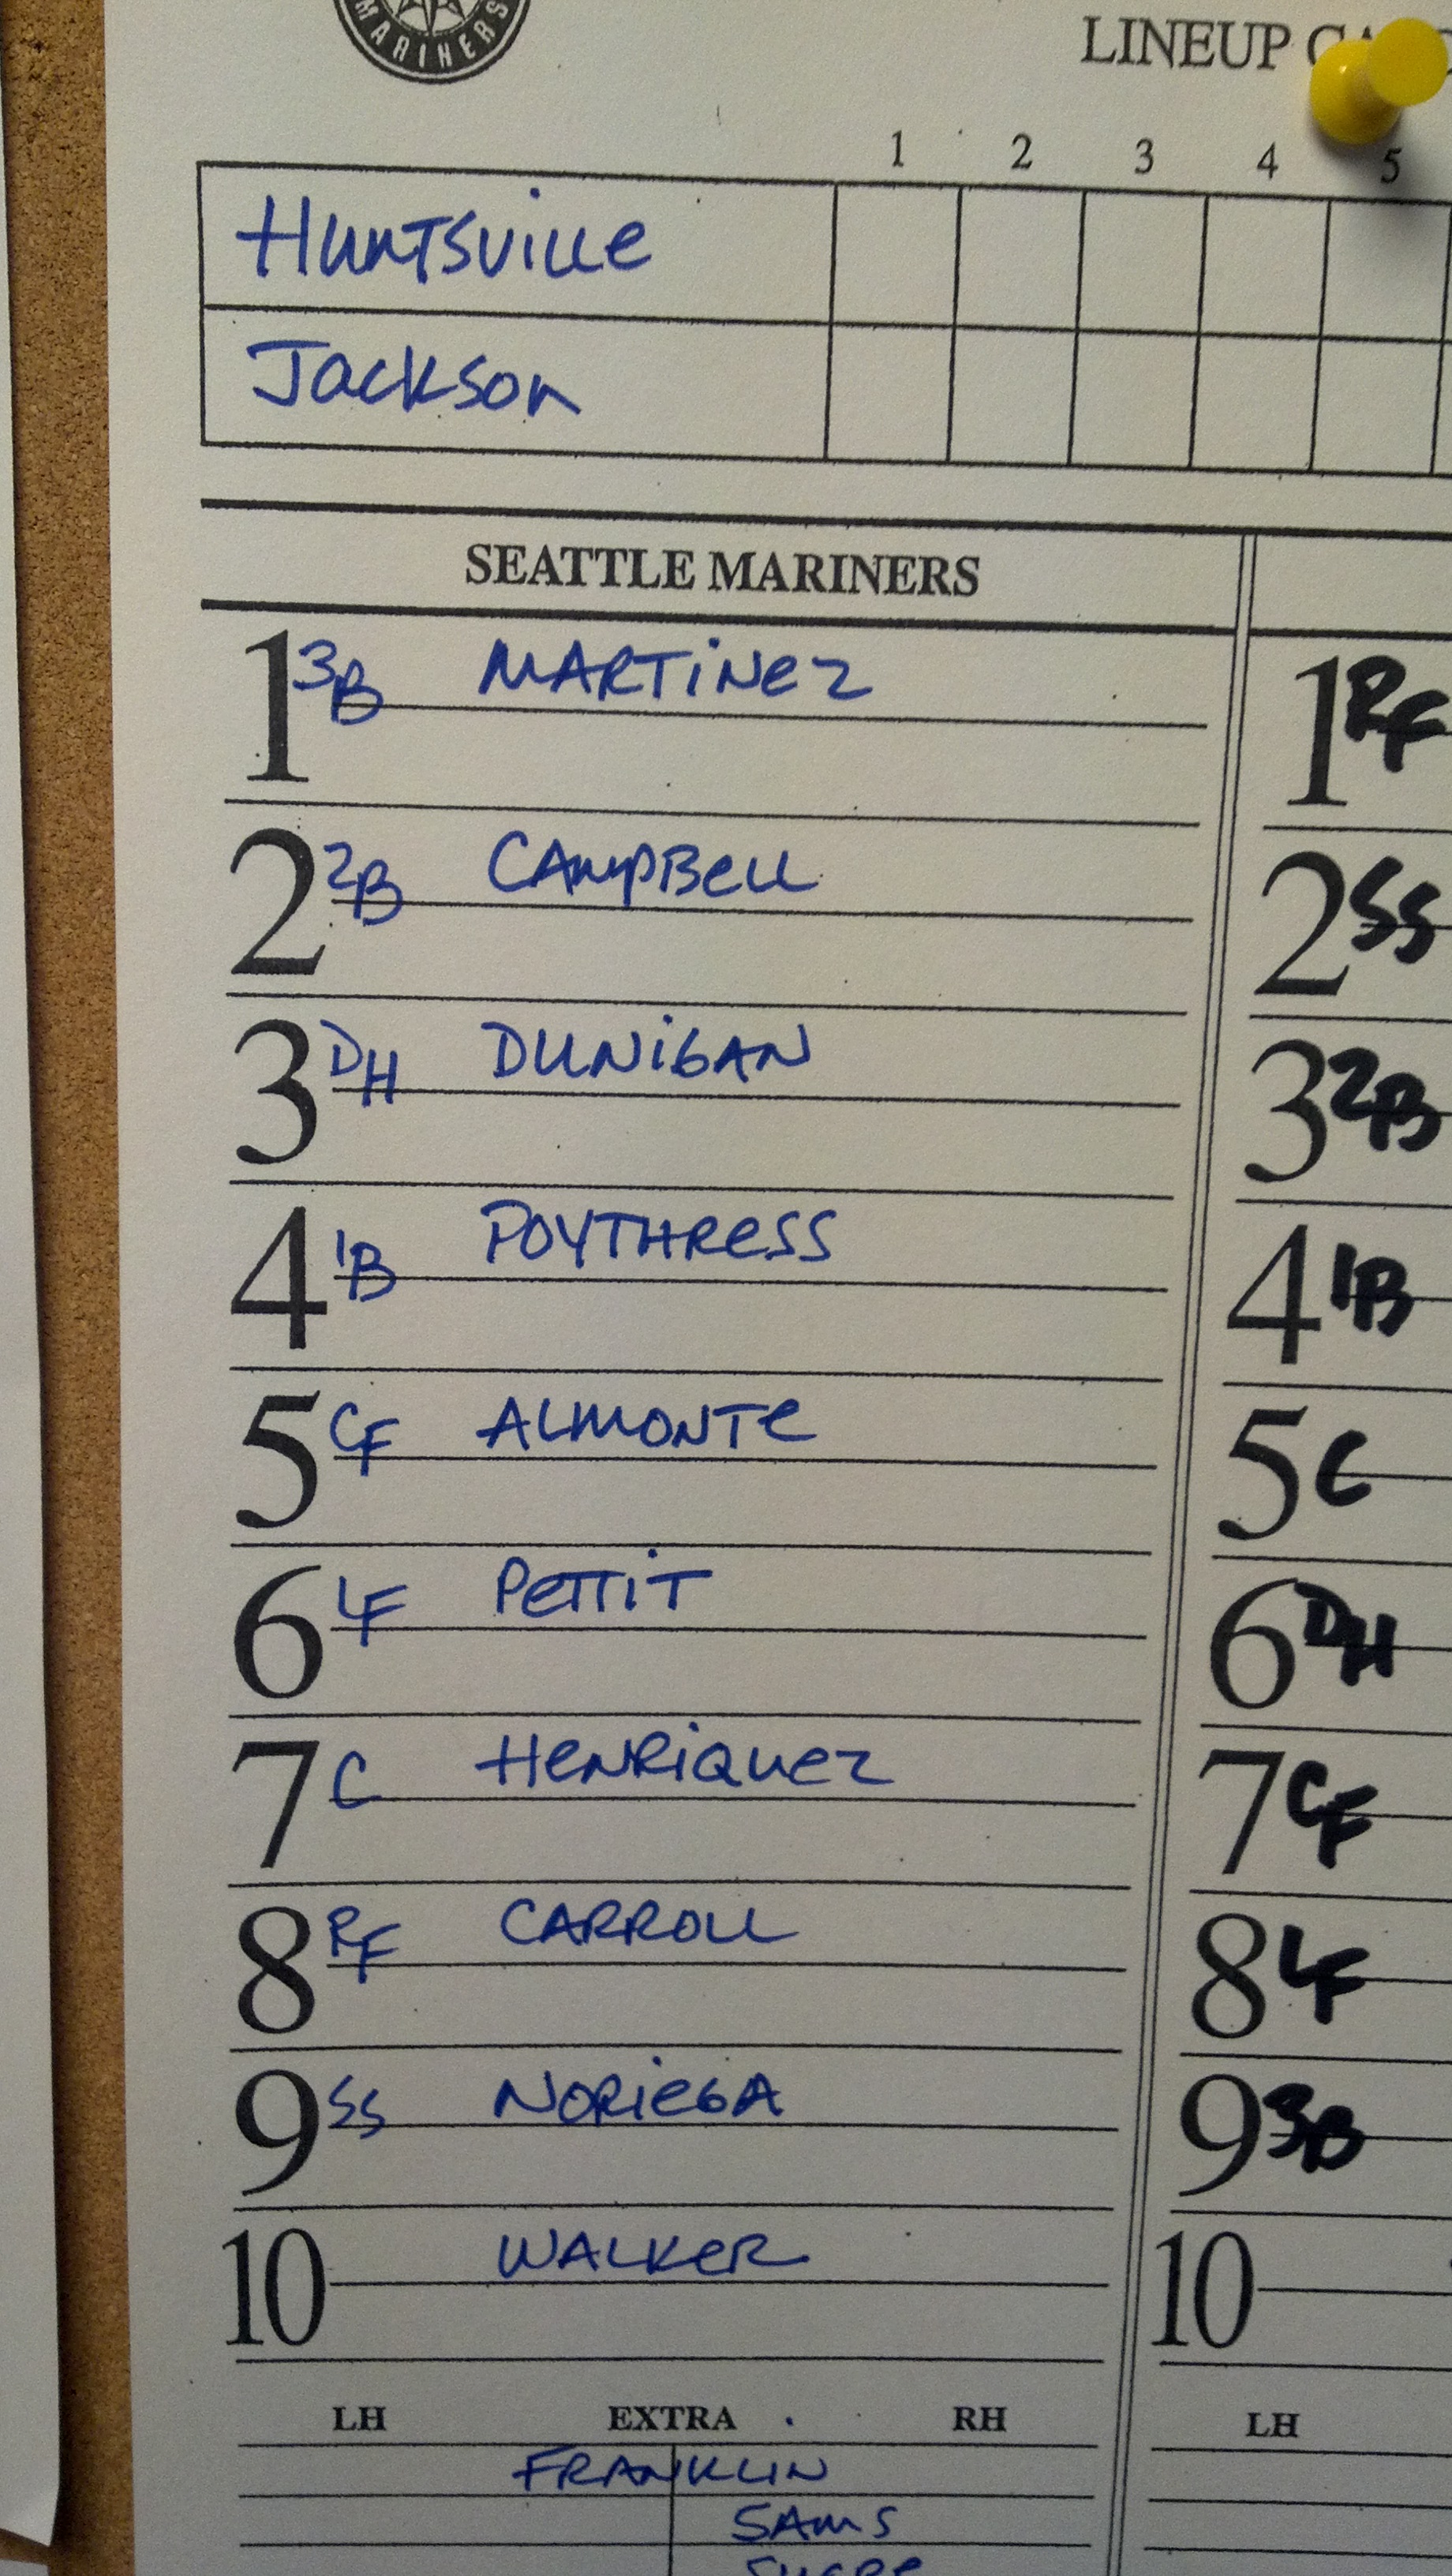 MARINERS
LINEUP
1 2 3 4 5
Huntsville
Jackson
SEATTLE MARINERS
1 3B MARTINEZ
1 RF
2 2B CAMPBELL
2 SS
3 DH DUNIGAN
3 2B
4 1B POYTHRESS
4 1B
5 CF ALMONTE
5 C
6 LF PETTIT
6 DH
7 C HENRIQUEZ
7 CF
8 RF CARROLL
8 LF
9 SS NORIEGA
9 3B
10 WALKER
10
LH EXTRA RH
LH
FRANKLIN
SAMS